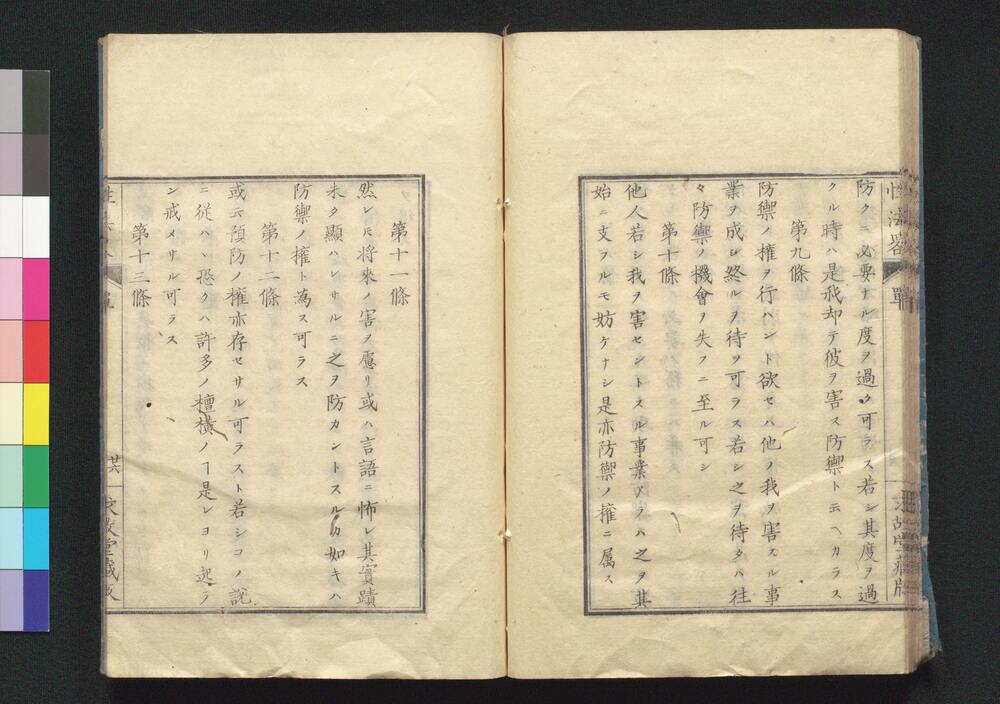 性法畧 單
防クニ必要ナル度ヲ過ク可ラス若シ其度ヲ過
クル時ハ是我却テ彼ヲ害ス防禦ト云ヘカラス
第九條
防禦ノ權ヲ行ハント欲セハ他ノ我ヲ害スル事
業ヲ成シ終ルヲ待ツ可ラス若シ之ヲ待タハ往
々防禦ノ機會ヲ失フニ至ル可シ
第十條
他人若シ我ヲ害セントスル事業アラハ之ヲ其
始ニ支フルモ妨ケナシ是亦防禦ノ權ニ属ス
第十一條
然レ𪜈將來ノ害ヲ慮リ或ハ言語ニ怖レ其實蹟
未タ顯ハレサルニ之ヲ防カントスルカ如キハ
防禦ノ權ト為ス可ラス
第十二條
或云預防ノ權亦存セサル可ラスト若シコノ説
ニ從ハヽ恐クハ許多ノ檀横ノヿ是レヨリ起ラ
ン戒メサル可ラス
第十三條
廿六